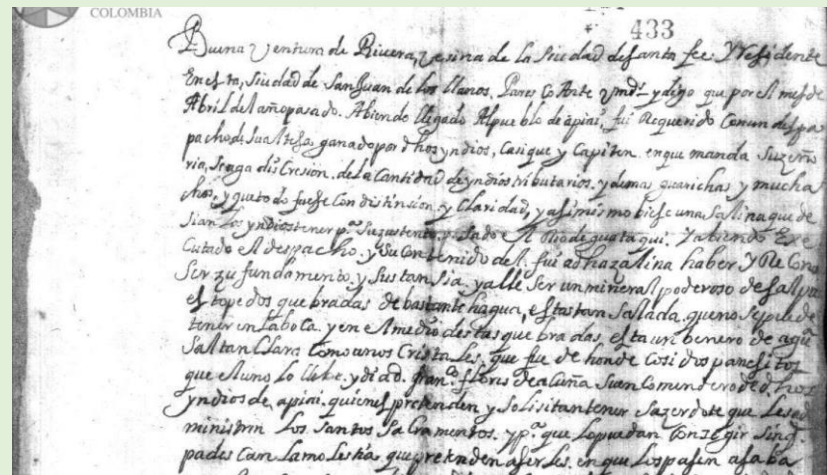 COLOMBIA
433
Buena Ventura de Rivera, vesina de la Siudad de santa fee. Y Residente
En esta, Siudad de San Juan de los llanos, Paresco Ante vmd. y digo que por el mes de
Abril del año pasado. Abiendo llegado Al pueblo de apiai, fui Requerido Con un des pa
pacho de Su Altesa, ganado por dhos yndios, Casique y Capitan en que manda Su
ria, se aga discresion. de la Cantidad de yndios tributarios. y demas guarichas y mucha
chos, y que todo fuese Con distinsion y Claridad, y asi mismo biese una Salina que de
sian los yndios tener pa. su sustento, pasado el Rio de guata qui. Y abiendo Exe
Cutado el despacho. y su Contenido del. fui a dha zalina haber Y Re Cono
Ser zu fundamento y Sustansia. y alle ser un mineral poderoso de sal, pu
es tope dos quebradas de bastante hagua, estas tan Sallada, que no se puede
tener en la boca. y en el medio destas quebradas, esta un benero de agu
Sal tan Clara Como unos Cristales, que fue de honde Cosi dos panesitos
que el uno lo llebe. y di a d. franco. floris de acuña Su an Comendero de dhos
yndios de apiai. quienes pretenden y solisitan tener Sazerdote que les ad
ministrn los Santos Sacramentos. y pa. que lo puedan Conzegir Sin
pades Can la molestia, que pretenden aserles. en que los pasen a